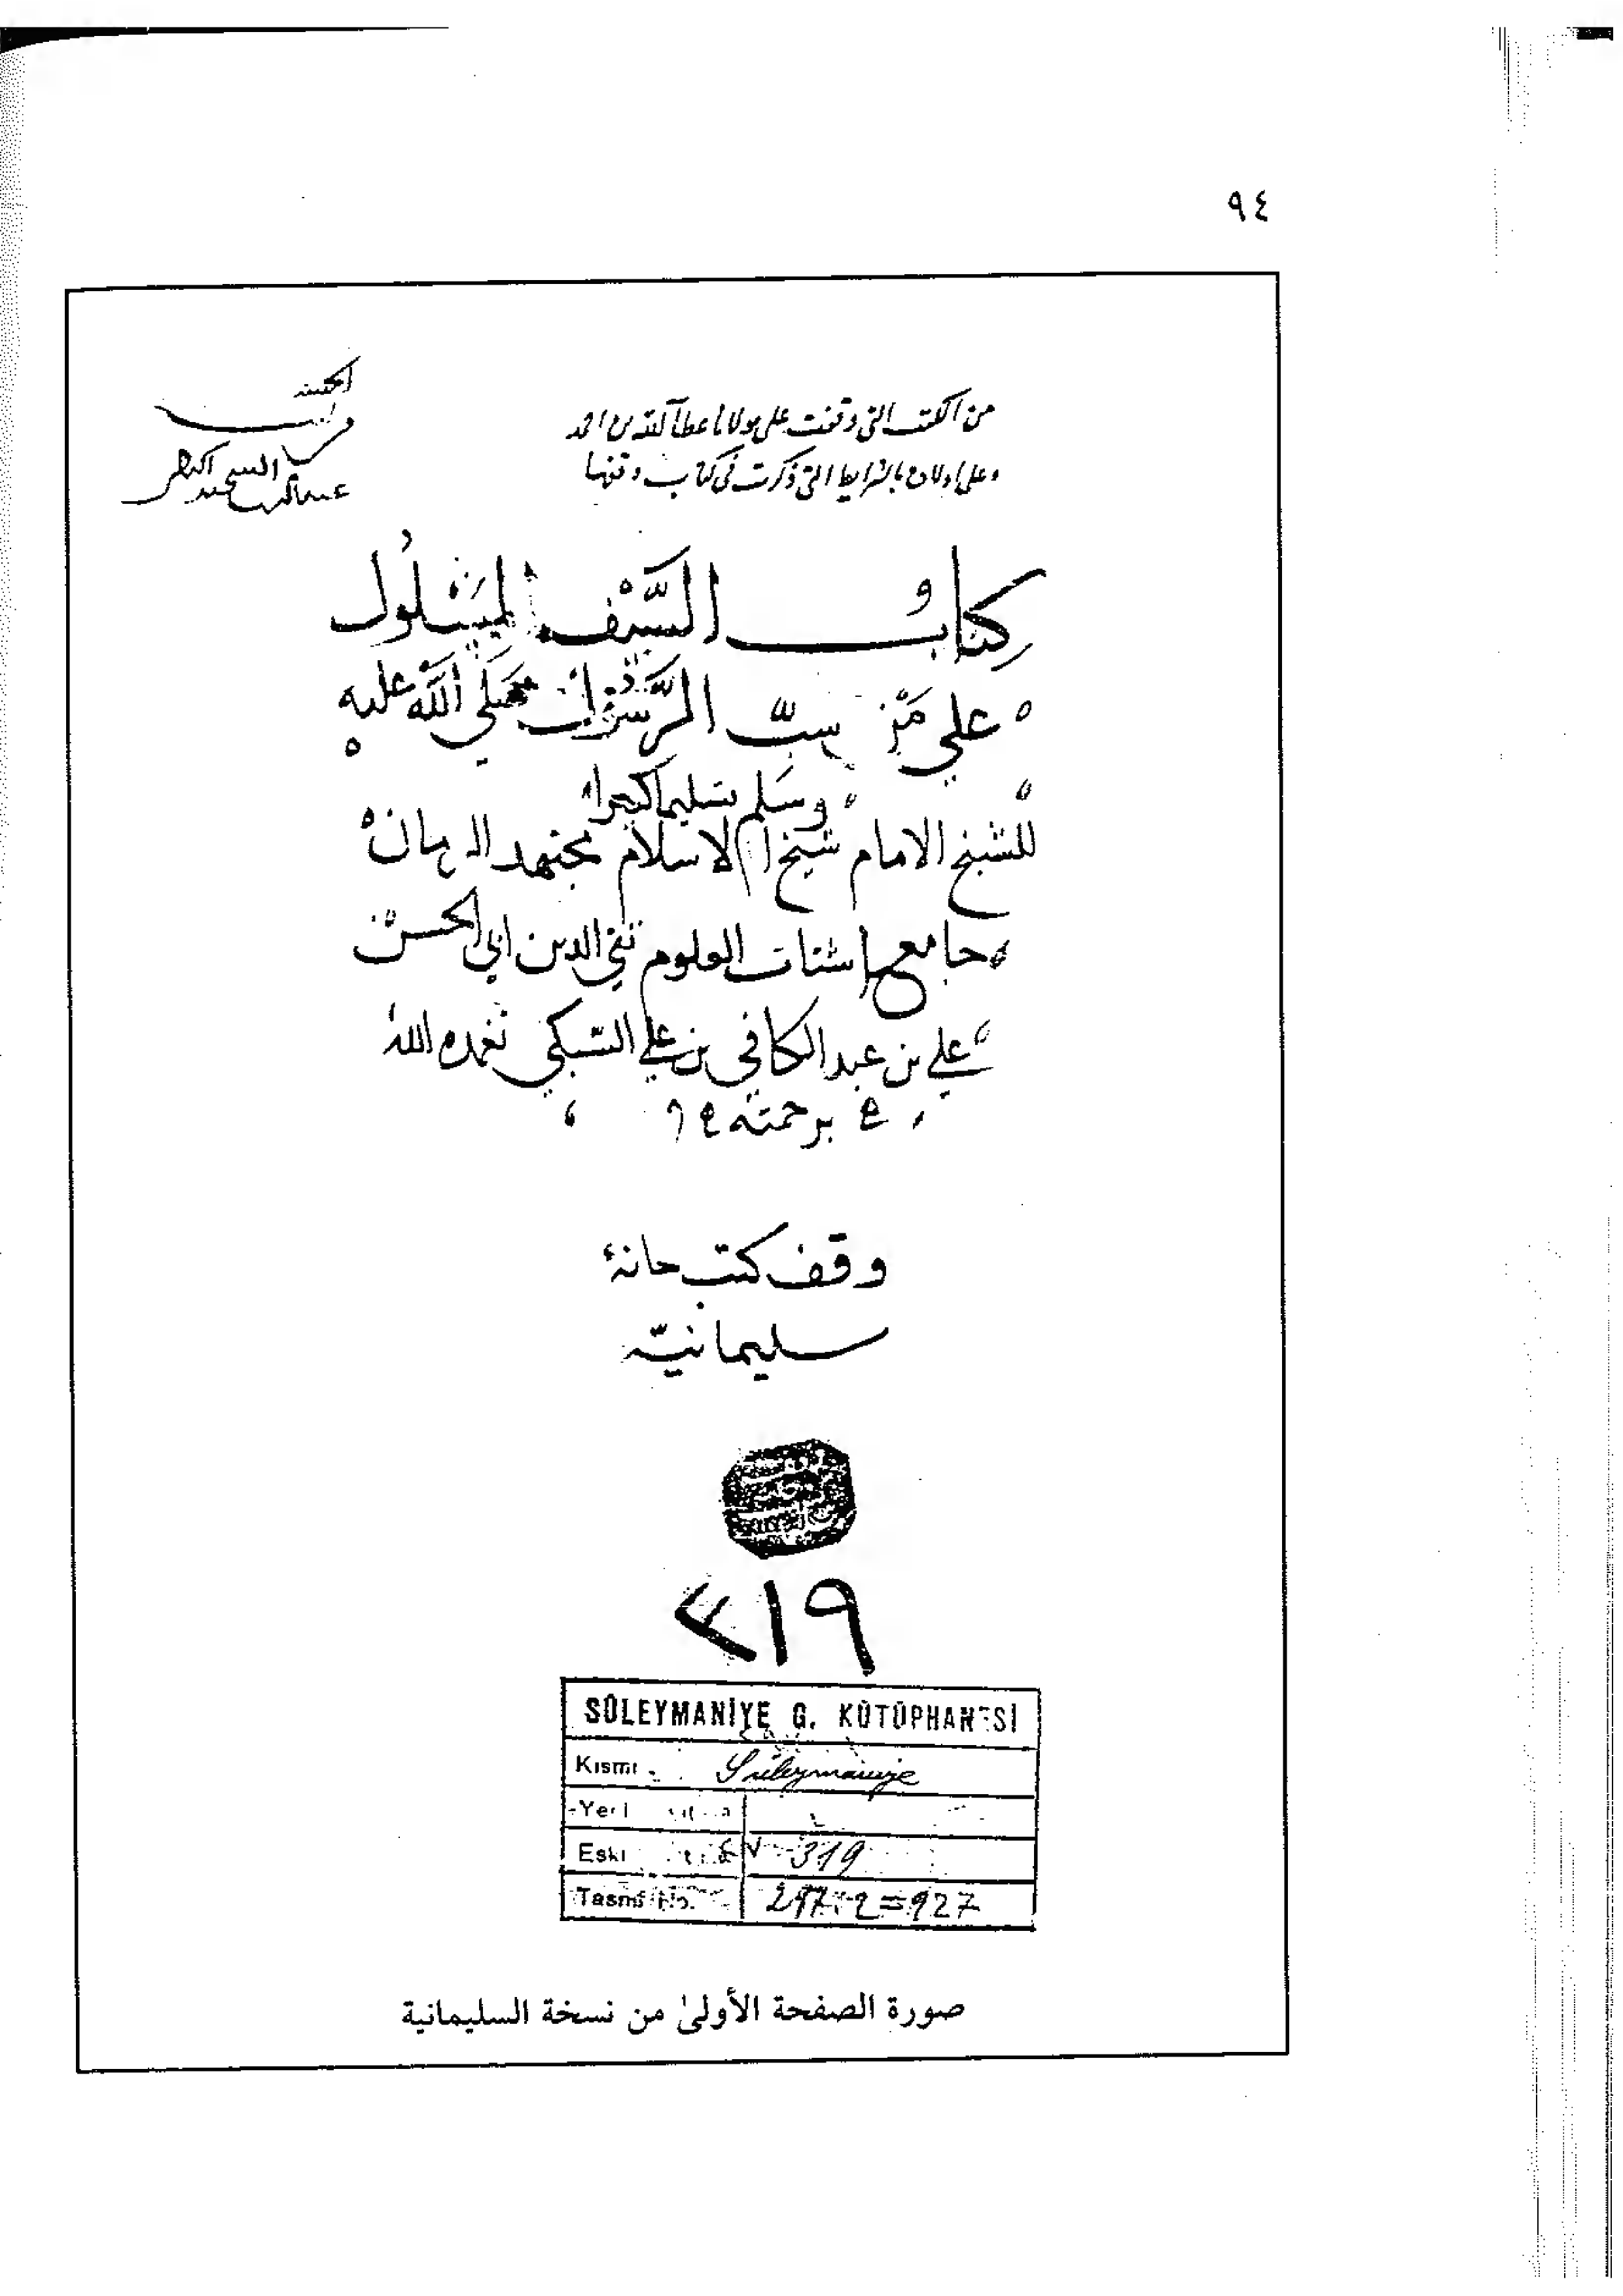 ٩٤
من الكتب التي وقفت على مولانا عطآ الله بن احمد
وعلى اولاده بالشرايط التي ذكرت في كتاب وقفها
كتاب السَّيْف المَسْلُول
علي مَنْ سبّ الرَّسُول صَلَي اللَّه عليه
وسَلم تسليما كثيرا
للشيخ الامام شيخ الاسلام مجتهد الزمان
جامع اشتات العلوم تقي الدين ابي الحسن
علي بن عبد الكافي بن علي السّبكي تغمده الله
برحمته
وقف كتبخانۀ
سليمانيّه
٣١٩
SÜLEYMANİYE G. KÜTÜPHANESİ
Kısmı Süleymaniye
Yeni
Eski 319
Tasnif No. 297.2=927
صورة الصفحة الأولىٰ من نسخة السليمانية